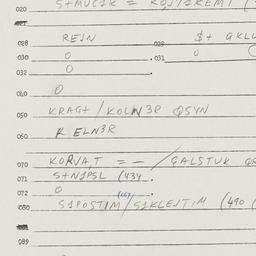 020 S+MUCIK = KOJIIKEMI (
028 REIN 029 $+ GKLU
030 O 031 O
032 O
040 O
050 KRAG+ / KOLN3R QSYN
060 K ELN3R
070 KORVA,T = - / GALSTUK
071 S+N1PSL (434
072 O
080 S1POSTIM / S1KLEJTIM (490
089